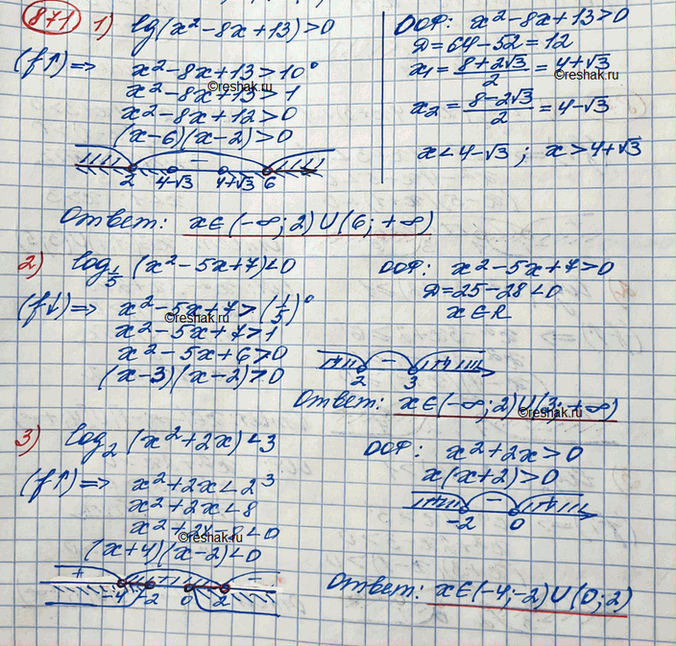 871 1) lg(x²-8x+13)>0
(f↑)=> x²-8x+13>10⁰
x²-8x+13>1
x²-8x+12>0
(x-6)(x-2)>0
2 4-√3 4+√3 6
ООФ: x²-8x+13>0
Д=64-52=12
x₁=(8+2√3)/2=4+√3
x₂=(8-2√3)/2=4-√3
x<4-√3 ; x>4+√3
Ответ: x∈(-∞;2)∪(6;+∞)
2) log₁/₅ (x²-5x+7)<0
(f↓)=> x²-5x+7>(1/5)⁰
x²-5x+7>1
x²-5x+6>0
(x-3)(x-2)>0
ООФ: x²-5x+7>0
Д=25-28<0
x∈R
2 3
Ответ: x∈(-∞;2)∪(3;+∞)
3) log₂ (x²+2x)<3
(f↑)=> x²+2x<2³
x²+2x<8
x²+2x-8<0
(x+4)(x-2)<0
+ + -
-4 -2 0 2
ООФ: x²+2x>0
x(x+2)>0
-2 0
Ответ: x∈(-4;-2)∪(0;2)
©reshak.ru
©reshak.ru
©reshak.ru
©reshak.ru
©reshak.ru